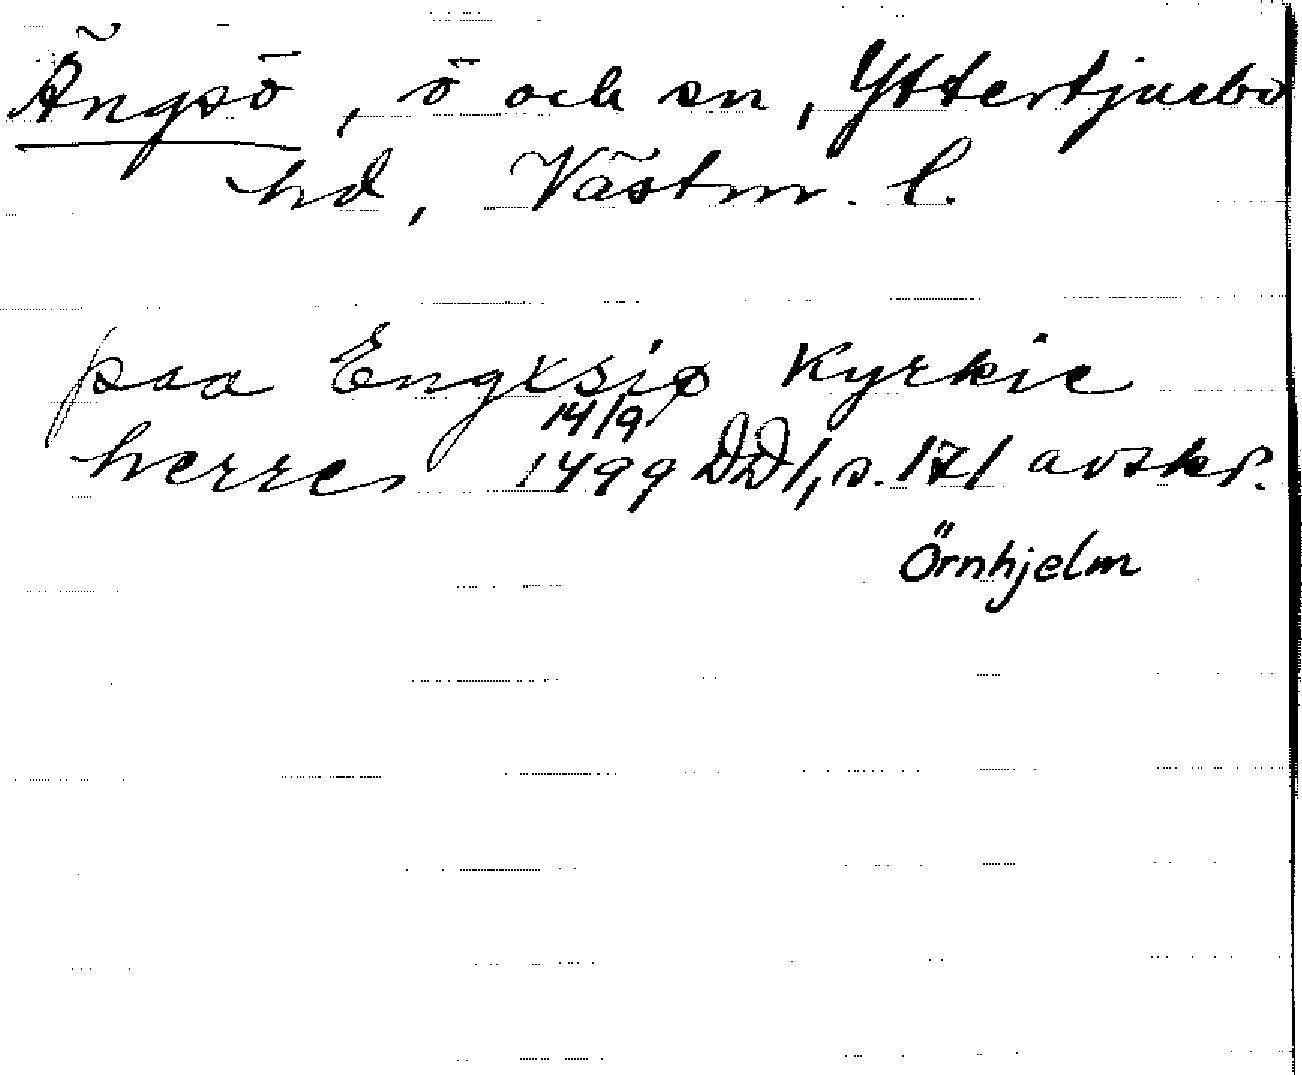 Ängsö, ö och sn, Yttertjurbo
hd, Västm. l.
paa Engxsiø Kyrkie
herres 14/9 1499 DD1, s. 171 avskr.
Örnhjelm